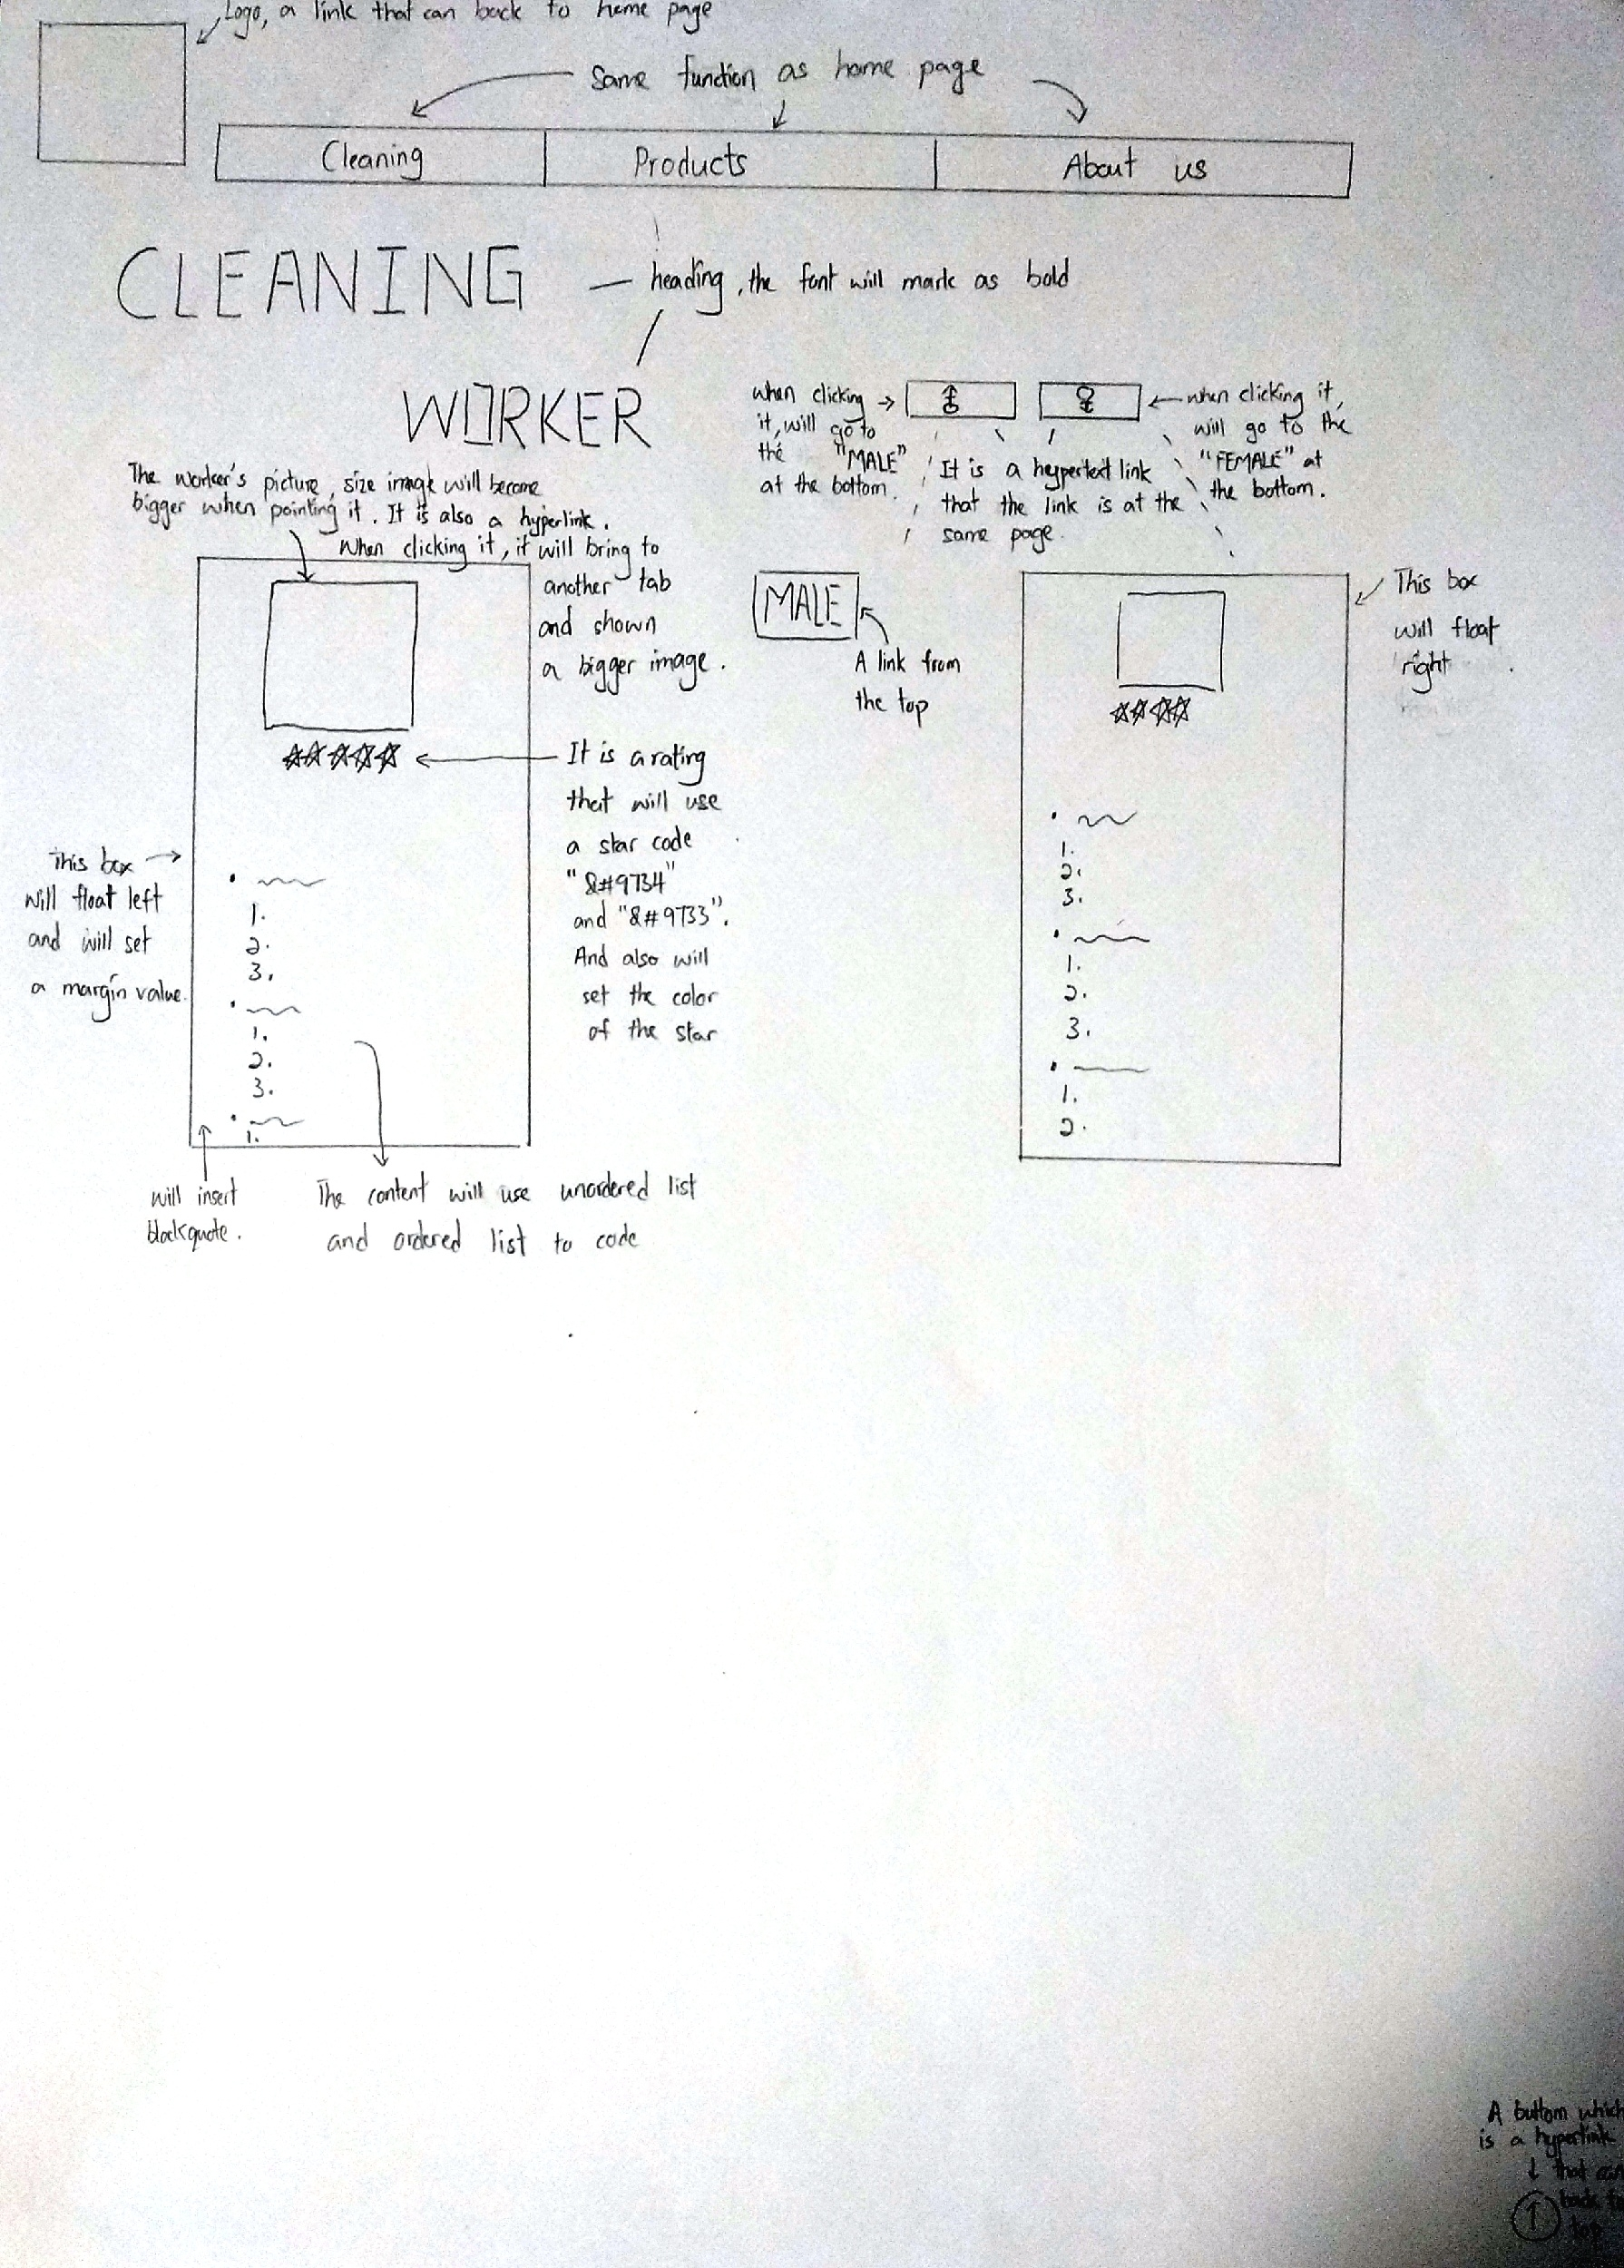 Logo, a link that can back to home page
Same function as home page
Cleaning
Products
About us
CLEANING
heading, the font will mark as bold
WORKER
when clicking
it, will go to
the "MALE"
at the bottom.
when clicking it,
will go to the
"FEMALE" at
the bottom.
It is a hypertext link
that the link is at the
same page.
The worker's picture, size image will become
bigger when pointing it. It is also a hyperlink.
When clicking it, it will bring to
another tab
and shown
a bigger image.
MALE
A link from
the top
This box
will float
right
It is a rating
that will use
a star code
"&#9734"
and "&#9733".
And also will
set the color
of the star
This box
will float left
and will set
a margin value.
1.
2.
3.
1.
2.
3.
1.
1.
2.
3.
1.
2.
3.
1.
2.
will insert
blockquote.
The content will use unordered list
and ordered list to code
A buttom which
is a hyperlink
that can
back to
top